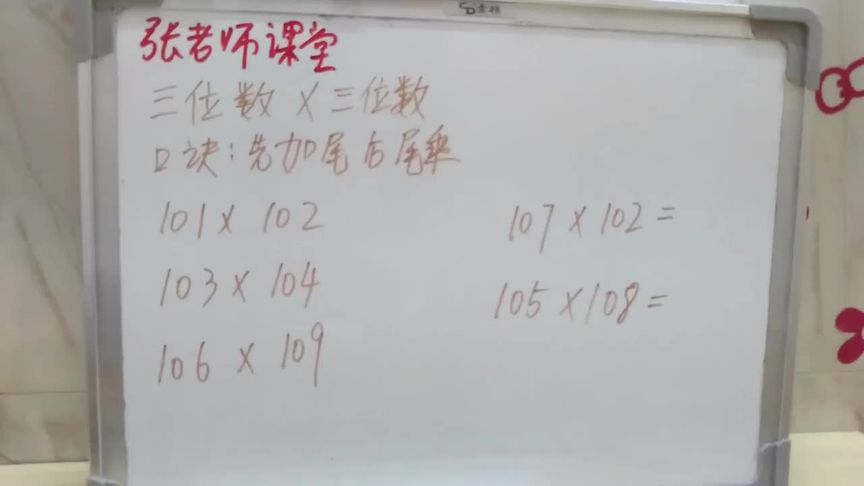 张老师课堂
三位数 × 三位数
口诀：先加尾后尾乘
101 × 102
107 × 102 =
103 × 104
105 × 108 =
106 × 109